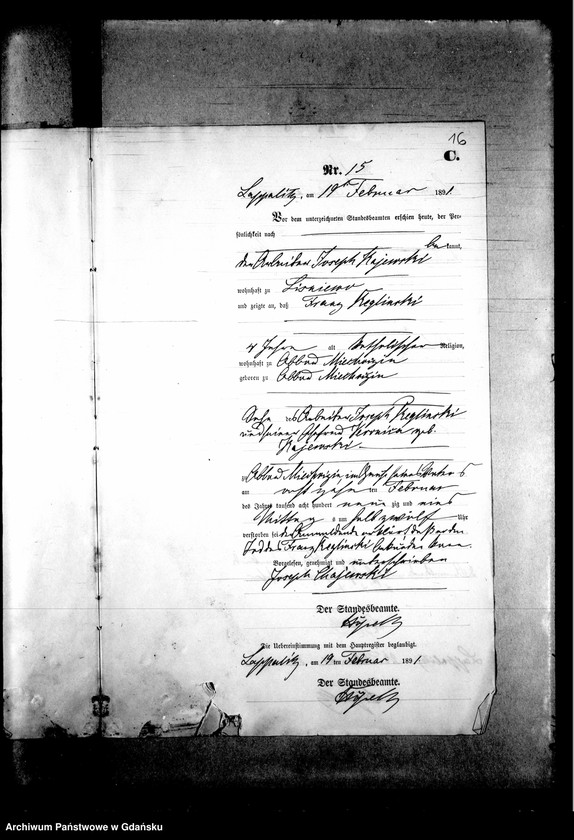 16
C.
Nr. 15
Lappalitz, am 19ten Februar 1891.
Vor dem unterzeichneten Standesbeamten erschien heute, der Per-
sönlichkeit nach
be kannt,
der Arbeiter Joseph Kajewski
wohnhaft zu Lisniewo
und zeigte an, daß Franz Reglinski
4 Jahre alt katholischer Religion,
wohnhaft zu Abbau Miechozin
geboren zu Abbau Miechozin
Sohn des Arbeiter Joseph Reglinski
und seiner Ehefrau Veronica geb.
Kajewski
Abbau im Hause seines Vaters
am ten Februar
des Jahres tausend acht hundert neun zig und eins
Mittag s um halb zwölf Uhr
verstorben sei
des Franz Reglinski
Vorgelesen, genehmigt und unterschrieben
Joseph
Der Standesbeamte.
Die Uebereinstimmung mit dem Hauptregister beglaubigt.
Lappalitz, am 19 ten Februar 1891.
Der Standesbeamte.
Archiwum Państwowe w Gdańsku